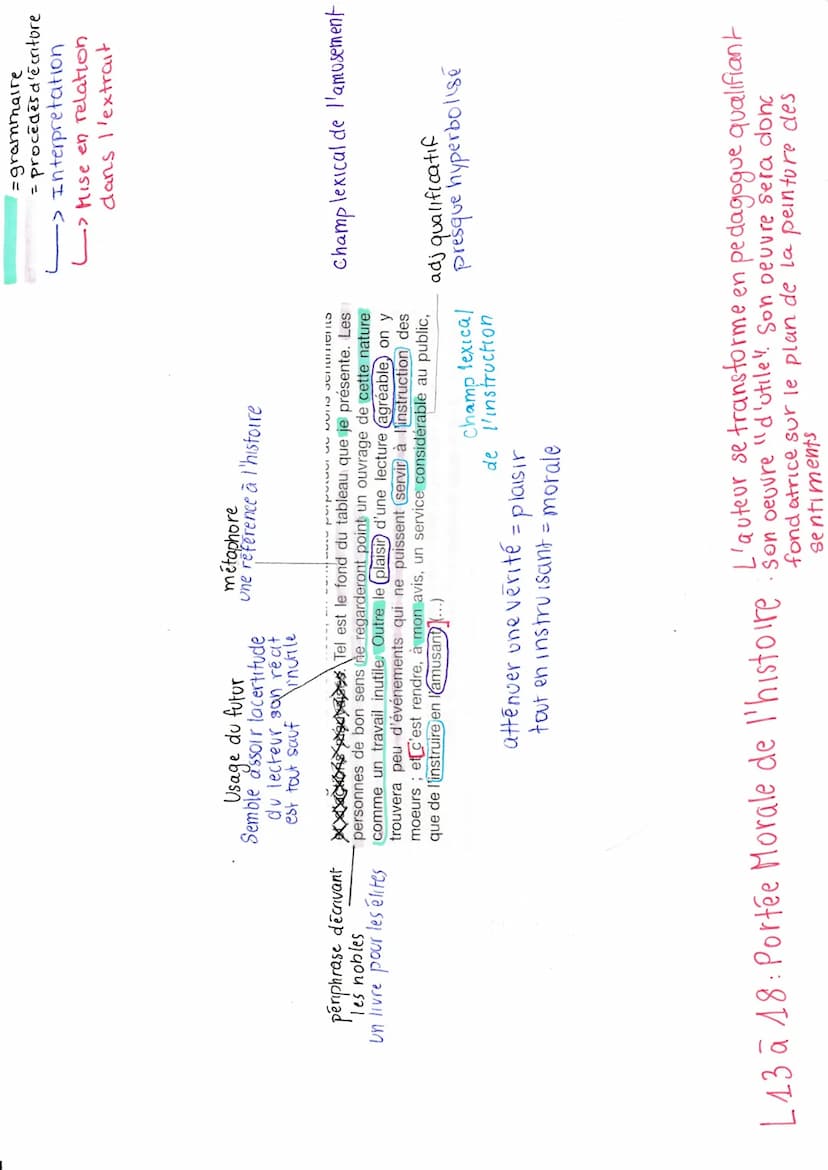 =grammaire
= procédés d'écriture
↳ Interpretation
↳ Mise en relation
dans l'extrait
métaphore
une référence à l'histoire
champ lexical de l'amusement
Usage du futur
Semble assoir la certitude
du lecteur son récit
est tout sauf inutile
périphrase décrivant
les nobles
un livre pour les élites
Tel est le fond du tableau que je présente. Les
personnes de bon sens ne regarderont point un ouvrage de cette nature
comme un travail inutile. Outre le plaisir d'une lecture agréable, on y
trouvera peu d'événements qui ne puissent servir à l'instruction des
moeurs ; et c'est rendre, à mon avis, un service considérable au public,
que de l'instruire en l'amusant. (...)
adj qualificatif
presque hyperbolisé
champ lexical
de l'instruction
atténuer une vérité = plaisir
tout en instruisant = morale
L13 à 18 : Portée Morale de l'histoire :
L'auteur se transforme en pedagogue qualifiant
son oeuvre "d'utile". Son oeuvre sera donc
fondatrice sur le plan de la peinture des
sentiments